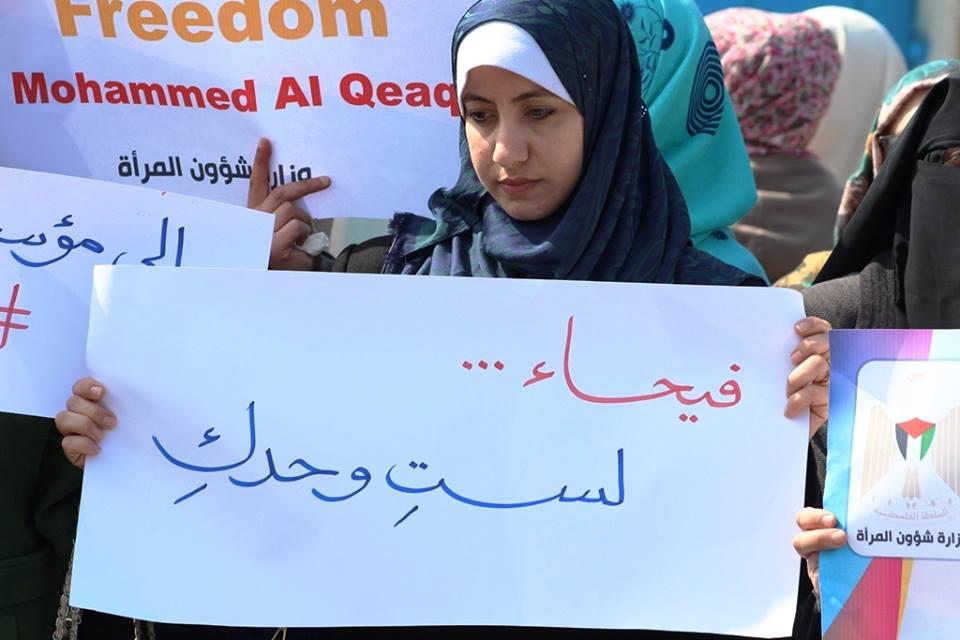 Freedom
Mohammed Al Qeaq
وزارة شؤون المرأة
إلى
#
فيحاء ...
لستِ وحدكِ
السلطة الفلسطينية
وزارة شؤون المرأة